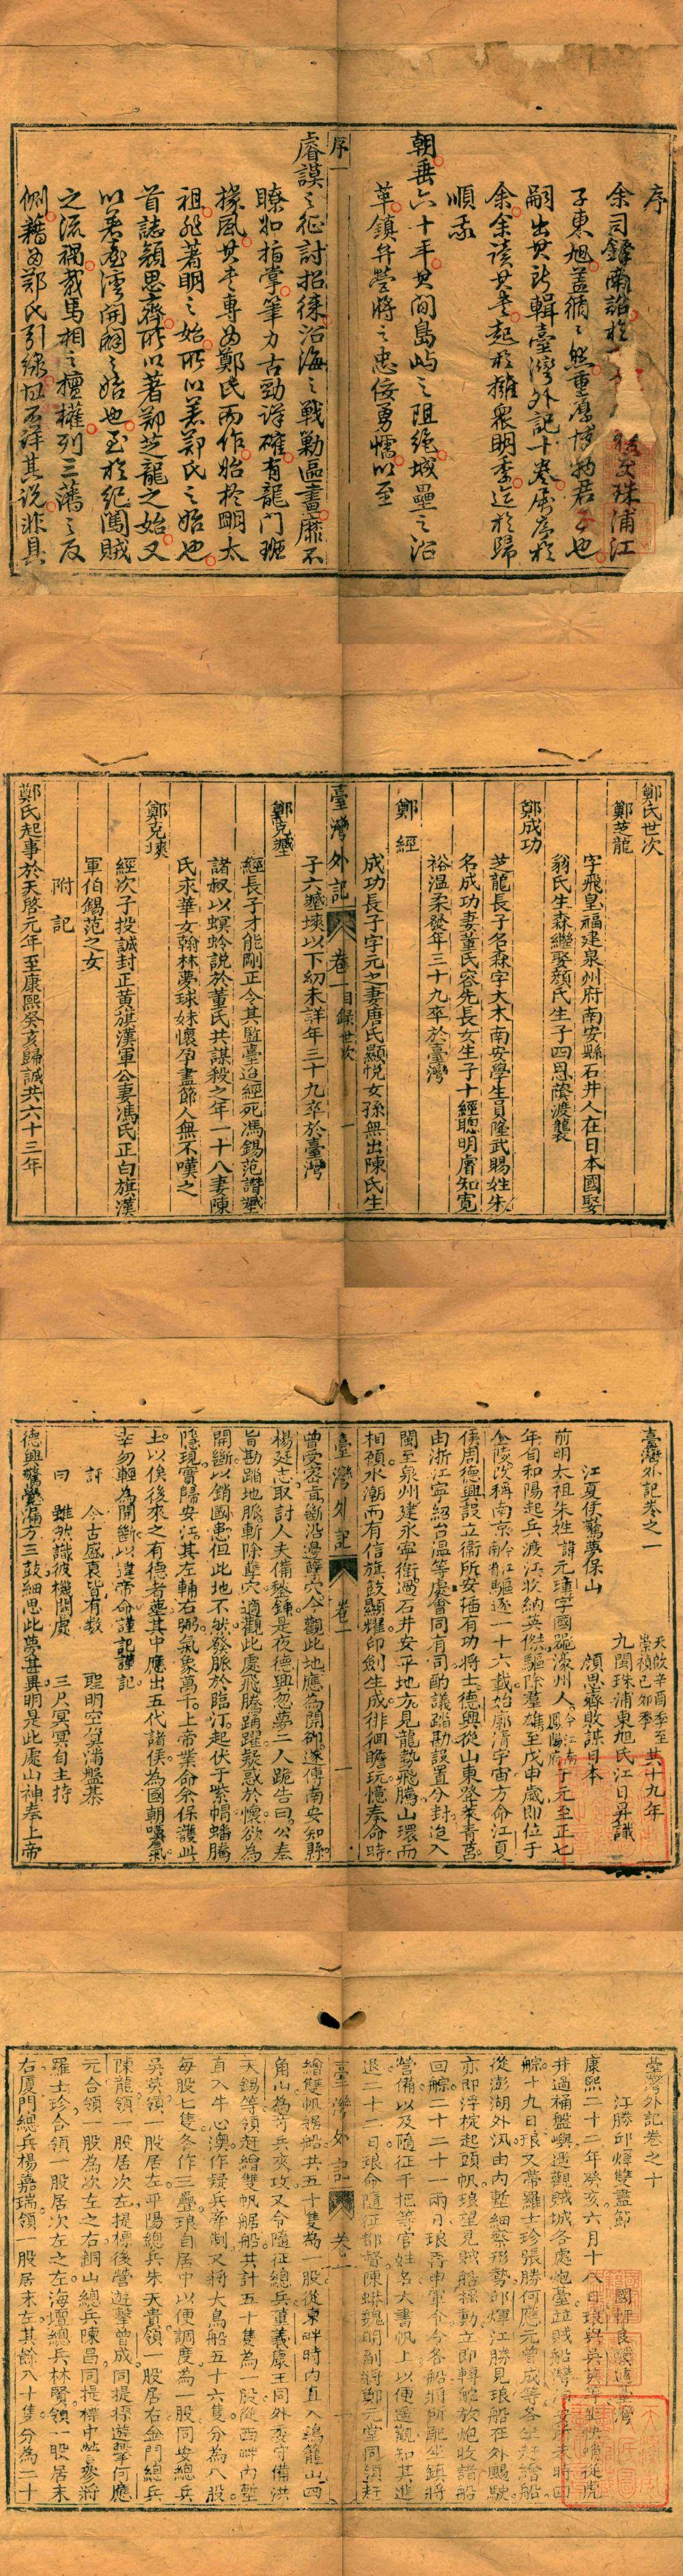 序
余司鐸南詔於
子東旭蓋循循然重厚博物君子也
嗣出其所輯臺灣外記十卷屬序於
余余讀其書起於擁眾明季迄於歸
順我
朝垂六十年其間島嶼之阻絕城壘之沿
革鎮弁營將之忠佞勇懦以至
序一
睿謨之征討招徠沿海之戰勦區畫靡不
瞭如指掌筆力古勁詳確有龍門班
掾風其書專為鄭氏而作始於明太
祖
著明之始所以著鄭氏之始也
首誌顏思齊所以著鄭芝龍之始又
以著臺灣開闢之始也至於紀闖賊
之流禍載馬相之擅權列三藩之反
側藉為鄭氏引線
鄭氏世次
鄭芝龍
字飛皇福建泉州府南安縣石井人在日本國娶
翁氏生森繼娶顏氏生子四恩蔭渡襲
鄭成功
芝龍長子名森字大木南安學生員隆武賜姓朱
名成功妻董氏容先長女生子十經聰明睿知寬
裕溫柔發年三十九卒於臺灣
鄭經
成功長子字元之妻唐氏顯悅女孫無出陳氏生
臺灣外記 卷一 目錄世次 一
子六𡒉塽以下幼未詳年三十九卒於臺灣
鄭克𡒉
經長子才能剛正令其監臺迨經死馮錫范譖𡒉
諸叔以螟蛉說於董氏共謀殺之年一十八妻陳
氏永華女翰林夢球妹懷孕盡節人無不嘆之
鄭克塽
經次子投誠封正黃旗漢軍公妻馮氏正白旗漢
軍伯錫范之女
附記
鄭氏起事於天啓元年至康熙癸亥歸誠共六十三年
臺灣外記卷之一
天啟辛酉年至崇禎己卯年共十九年
九閩珠浦東旭氏江日昇識
江夏侯驚夢保山 顏思齊敗謀日本
前明太祖朱姓諱元璋字國瑞濠州人今江南鳳陽府于元至正七
年自和陽起兵渡江收納英傑驅除羣雄至戊申歲即位于
金陵改稱南京今江南省驅逐一十六載始廓清宇宙方命江夏
侯周德興設立衛所安插有功將士德興從山東登萊青莒
由浙江寧紹台溫等處會同有司酌議踏勘設置分封迨入
閩至泉州建永寧衛過石井安平地方見龍勢飛騰山環而
相顧水潮而有信旗鼓顯耀印劍生成徘徊瞻玩憶奉命時
臺灣外記 卷一 一
曾受密旨斷沿邊孽穴今觀此地應為開斷遂傳南安知縣
楊廷志取討人夫備鍬鍾是夜德興忽夢二人跪告曰公奉
旨勘踏地脈斬除孽穴適觀此處飛騰踴躍疑惑於懷欲為
開斷以銷國患但此地不然發脈於臨汀起伏于紫帽蟠騰
隱現實歸安江其左輔右弼氣象萬千上帝業命余保護此
土以俟後來之有德者塟其中應出五代諸侯為國朝嚥氣
幸勿輕為開斷以違帝命謹記謹記
詩 今古盛衰皆有數 聖明空算滿盤棊
曰 雖然識彼機關處 三尺冥冥自主持
德興驚覺漏方三鼓細思此夢甚異明是此處山神奉上帝
臺灣外記卷之十
江勝邱煇雙盡節 國軒良驥遁臺灣
康熙二十二年癸亥六月十八日琅與吳英等坐快哨從虎
井過桶盤嶼遶觀賊城各處炮臺並賊船灣
艍十九日琅又帶羅士珍張勝何應元曾成等各坐趕繒船
從澎湖外汛由內塹細察形勢邱煇江勝見琅船在外賜駛
亦即浮椗起頭帆琅望見賊船搖動立即轉舵放炮收諸船
回艍二十二十一兩日琅再申軍令令各船將所配坐鎮將
營備以及隨征千把等官姓名大書帆上以便遙觀知其進
退二十二日琅命隨征都督陳蟒魏明副將鄭元堂同領趕
臺灣外記 卷十 一
繒雙帆艍船共五十隻為一股從東畔時內直入鷄籠山四
角山為奇兵夾攻又令隨征總兵董義康玉同外委守備洪
天錫等領趕繒雙帆艍船共計五十隻為一股從西畔內塹
直入牛心灣作疑兵牽制又將大鳥船五十六隻分為八股
每股七隻各作三疊琅自居中以便調度為一股同安總兵
吳英領一股居左平陽總兵朱天貴領一股居右金門總兵
陳龍領一股居次左提標後營遊擊曾成同提標遊擊何應
元合領一股為次左之右銅山總兵陳昌同提標中營參將
羅士珍合領一股居次左之左海壇總兵林賢領一股居末
右廈門總兵楊嘉瑞領一股居末左其餘八十隻分為二十